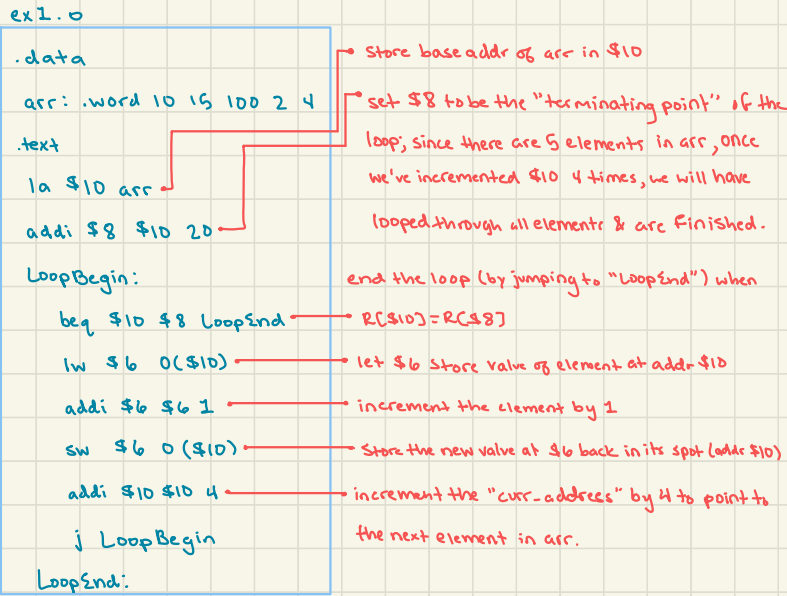 ex1.0
.data
arr: .word 10 15 100 2 4
.text
la $10 arr
addi $8 $10 20
LoopBegin:
beq $10 $8 LoopEnd
lw $6 0($10)
addi $6 $6 1
sw $6 0($10)
addi $10 $10 4
j LoopBegin
LoopEnd:
store base addr of arr in $10
set $8 to be the "terminating point" of the
loop; since there are 5 elements in arr, once
we've incremented $10 4 times, we will have
looped through all elements & are finished.
end the loop (by jumping to "LoopEnd") when
R[$10]=R[$8]
let $6 store value of element at addr $10
increment the element by 1
store the new value at $6 back in its spot (addr $10)
increment the "curr_address" by 4 to point to
the next element in arr.